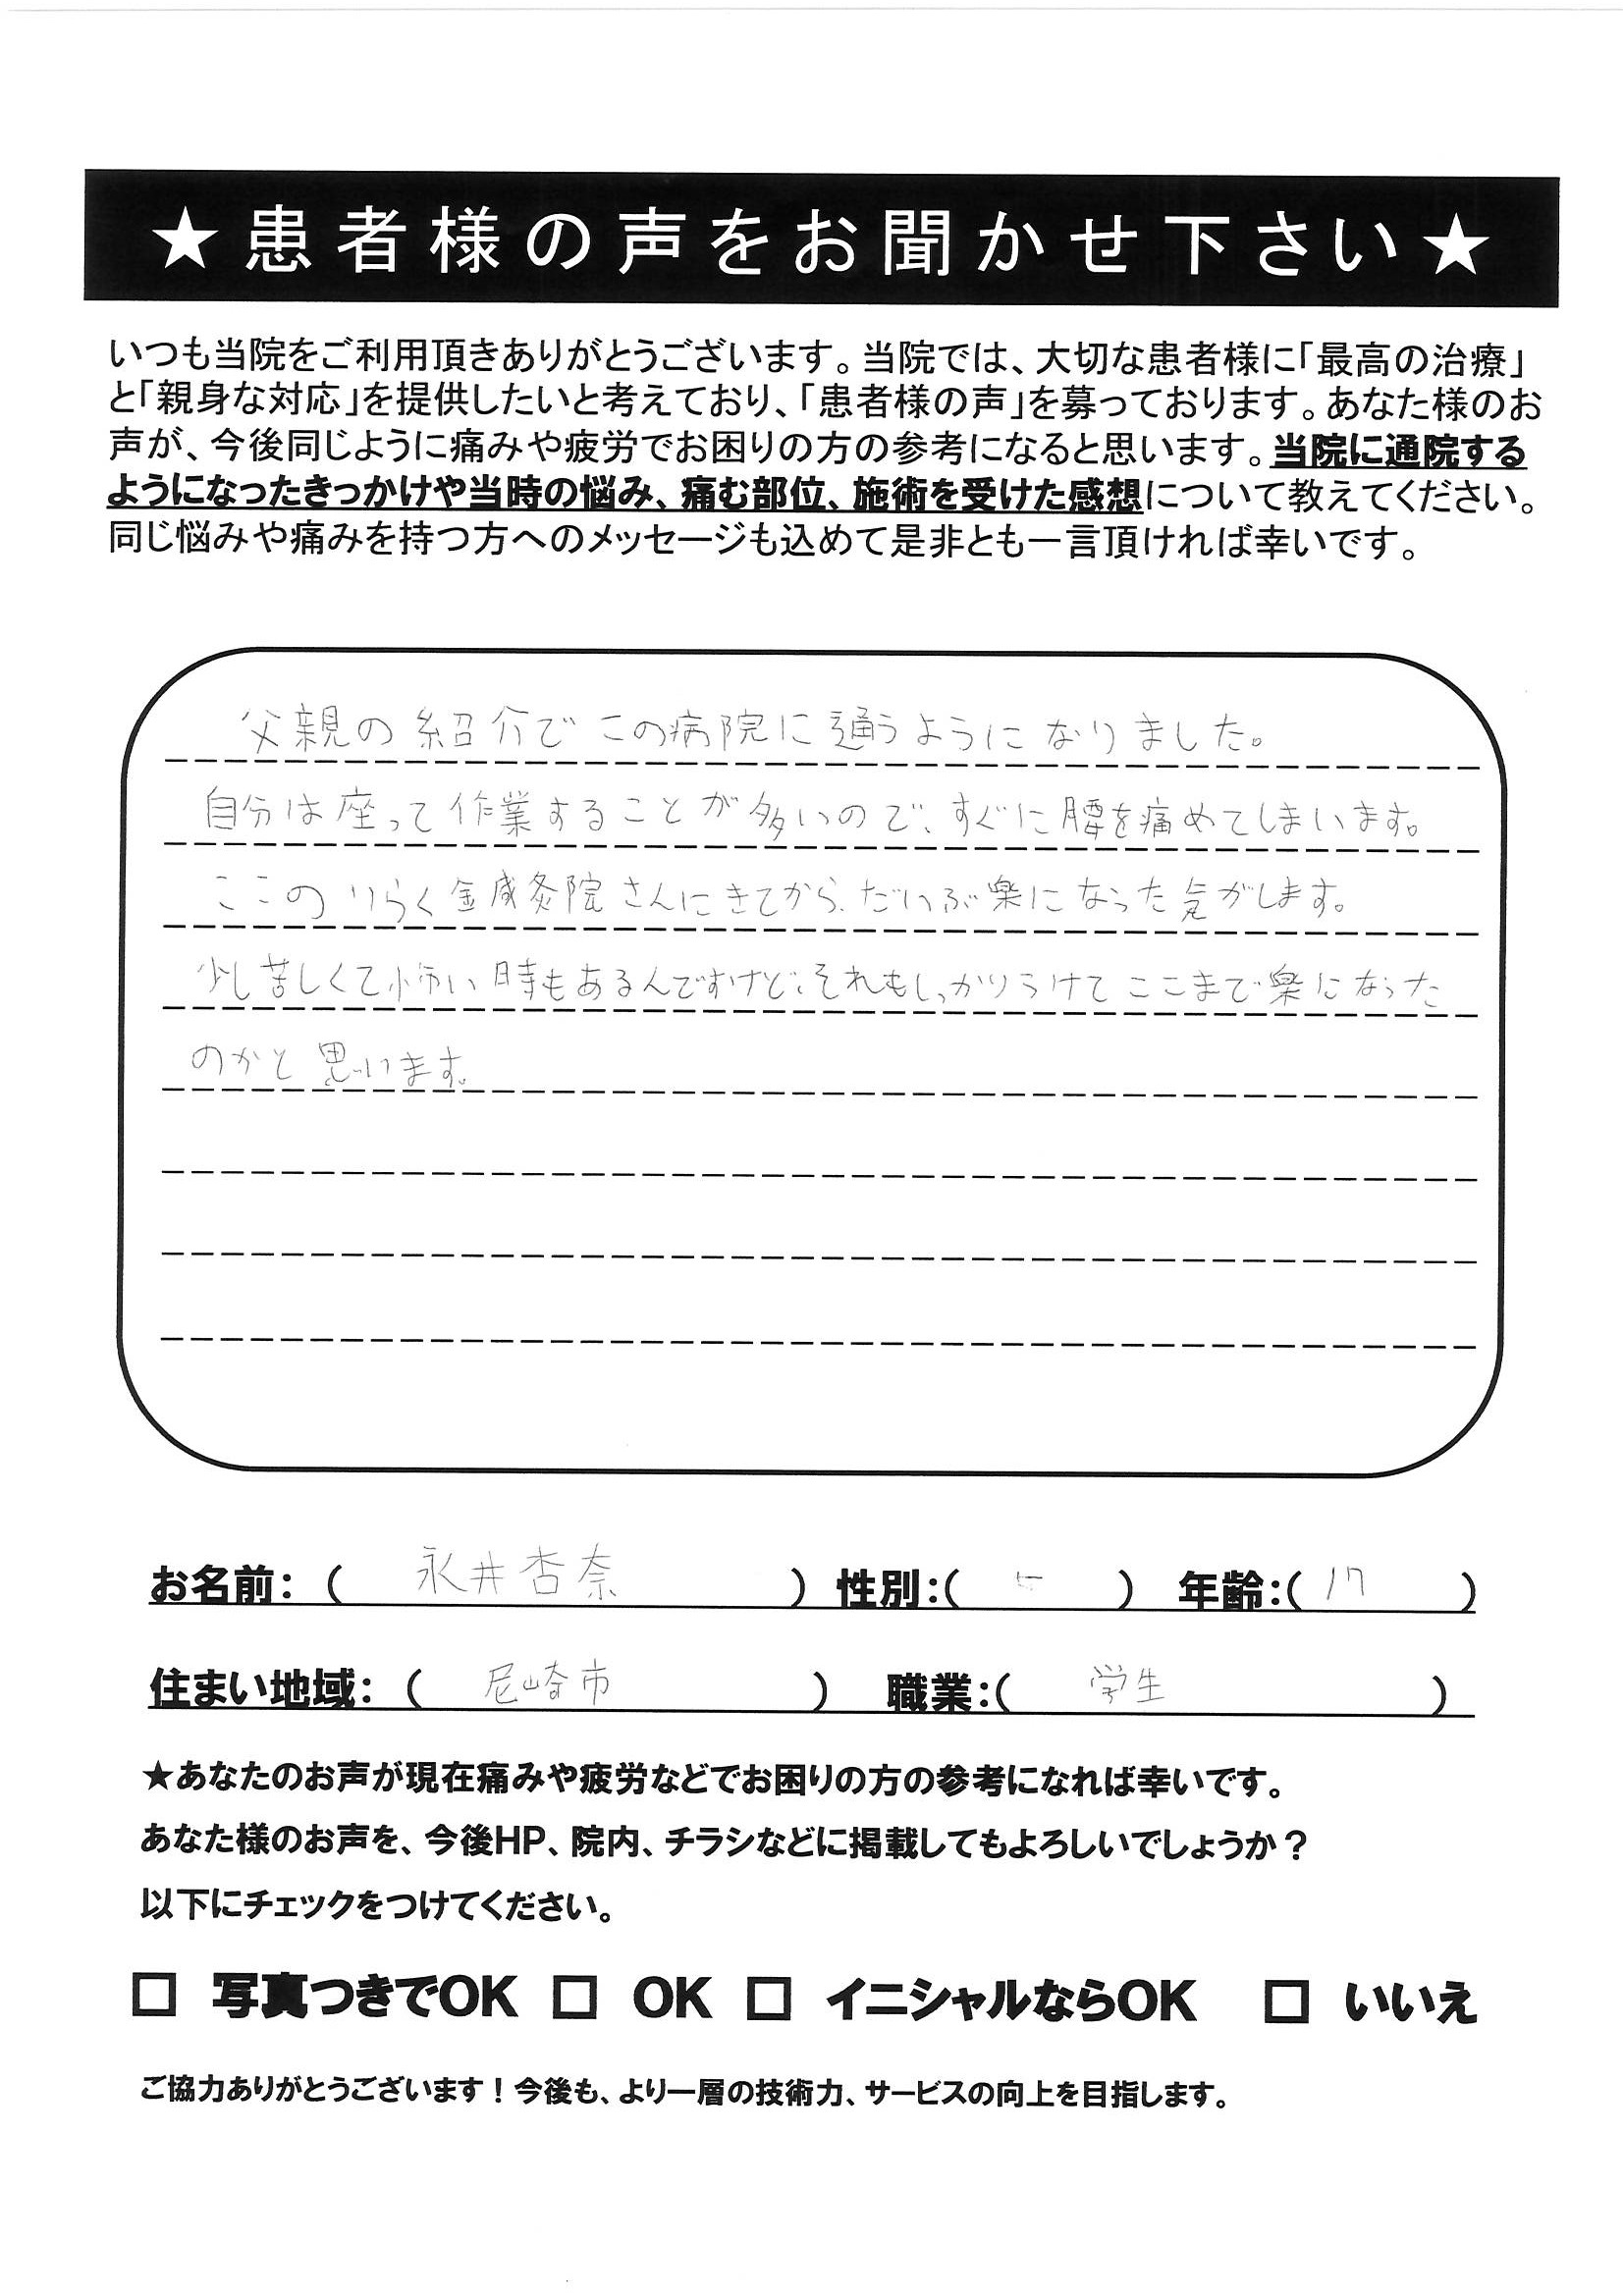 ★患者様の声をお聞かせ下さい★
いつも当院をご利用頂きありがとうございます。当院では、大切な患者様に「最高の治療」
と「親身な対応」を提供したいと考えており、「患者様の声」を募っております。あなた様のお
声が、今後同じように痛みや疲労でお困りの方の参考になると思います。当院に通院する
ようになったきっかけや当時の悩み、痛む部位、施術を受けた感想について教えてください。
同じ悩みや痛みを持つ方へのメッセージも込めて是非とも一言頂ければ幸いです。
父親の紹介でこの病院に通うようになりました。
自分は座って作業することが多いので、すぐに腰を痛めてしまいます。
ここのりらく鍼灸院さんにきてから、だいぶ楽になった気がします。
少し苦しくて怖い時もあるんですけど、それもしっかりうけてここまで楽になった
のかと思います。
お名前：（ 永井杏奈 ） 性別：（ ） 年齢：（ 17 ）
住まい地域：（ 尼崎市 ） 職業：（ 学生 ）
★あなたのお声が現在痛みや疲労などでお困りの方の参考になれば幸いです。
あなた様のお声を、今後HP、院内、チラシなどに掲載してもよろしいでしょうか？
以下にチェックをつけてください。
□ 写真つきでOK □ OK □ イニシャルならOK □ いいえ
ご協力ありがとうございます！今後も、より一層の技術力、サービスの向上を目指します。